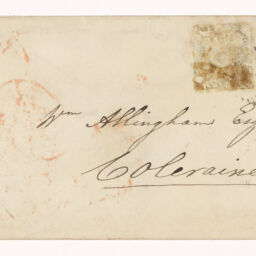 Wm Allingham Esq
Coleraine